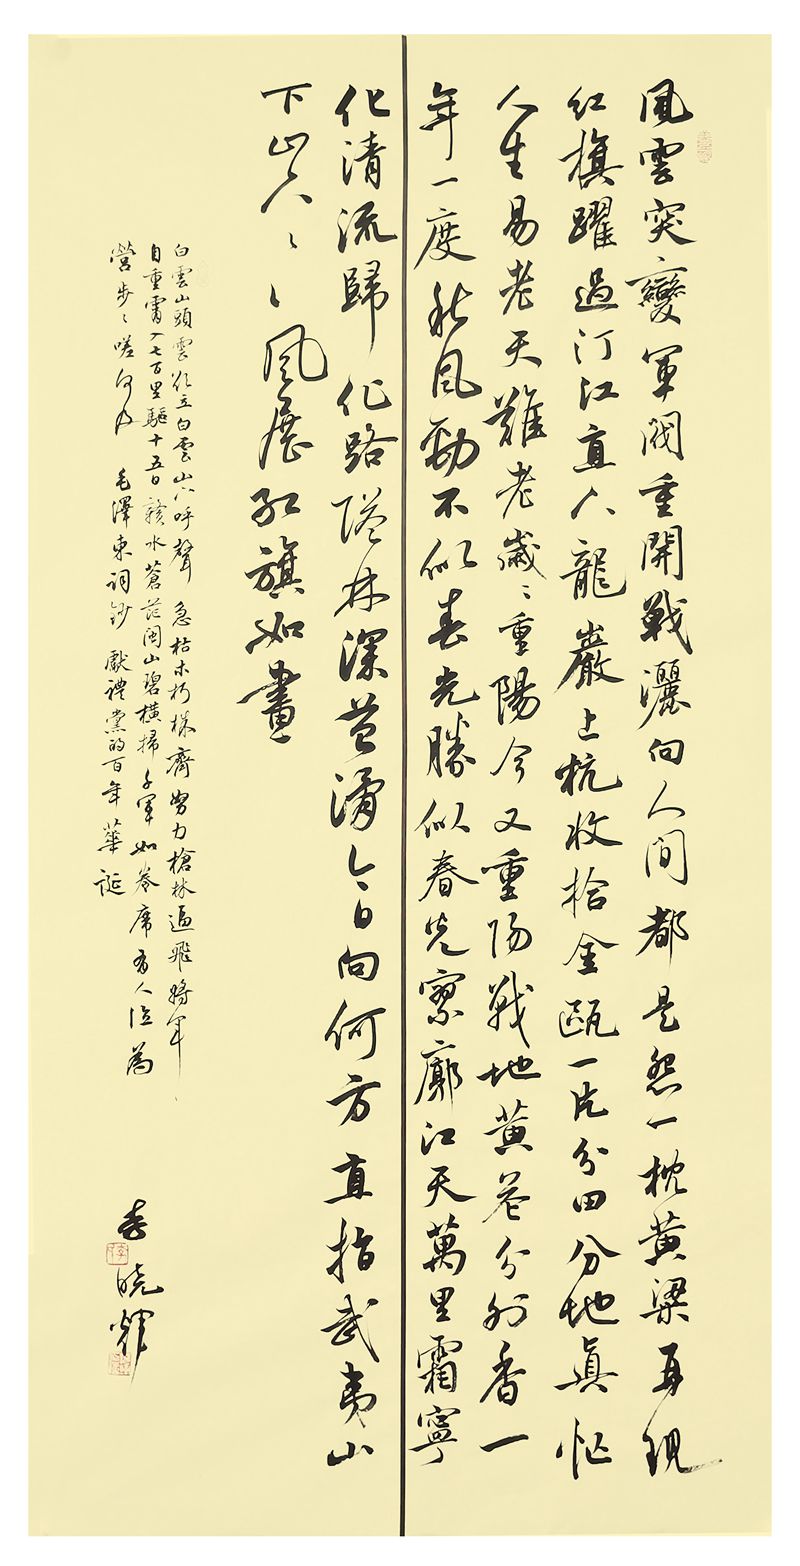 風雲突變軍閥重開戰灑向人间都是怨一枕黄粱再現
红旗躍過汀江直下龍巖上杭收拾金甌一片分田分地真忙
人生易老天難老歲〻重陽今又重陽戰地黄花分外香一
年一度秋風勁不似春光勝似春光寥廓江天萬里霜寧
化清流歸化路隘林深苔滑今日向何方直指武夷山
下山下〻〻風展红旗如畫
白雲山頭雲欲立白雲山下呼聲急枯木朽株齊努力槍林逼飛將軍
自重霄入七百里驅十五日贛水蒼茫闽山碧横掃千軍如卷席有人泣為
營步〻嗟何及 毛澤東詞鈔 獻禮黨的百年華誕
李曉輝